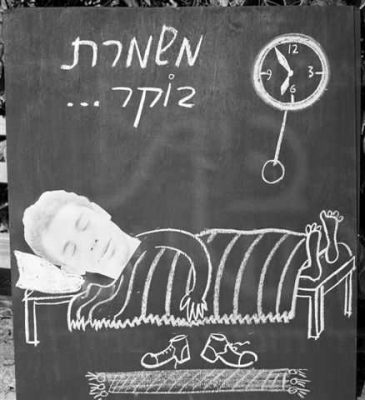 משמרת
בוקר ...
12
9 3
6